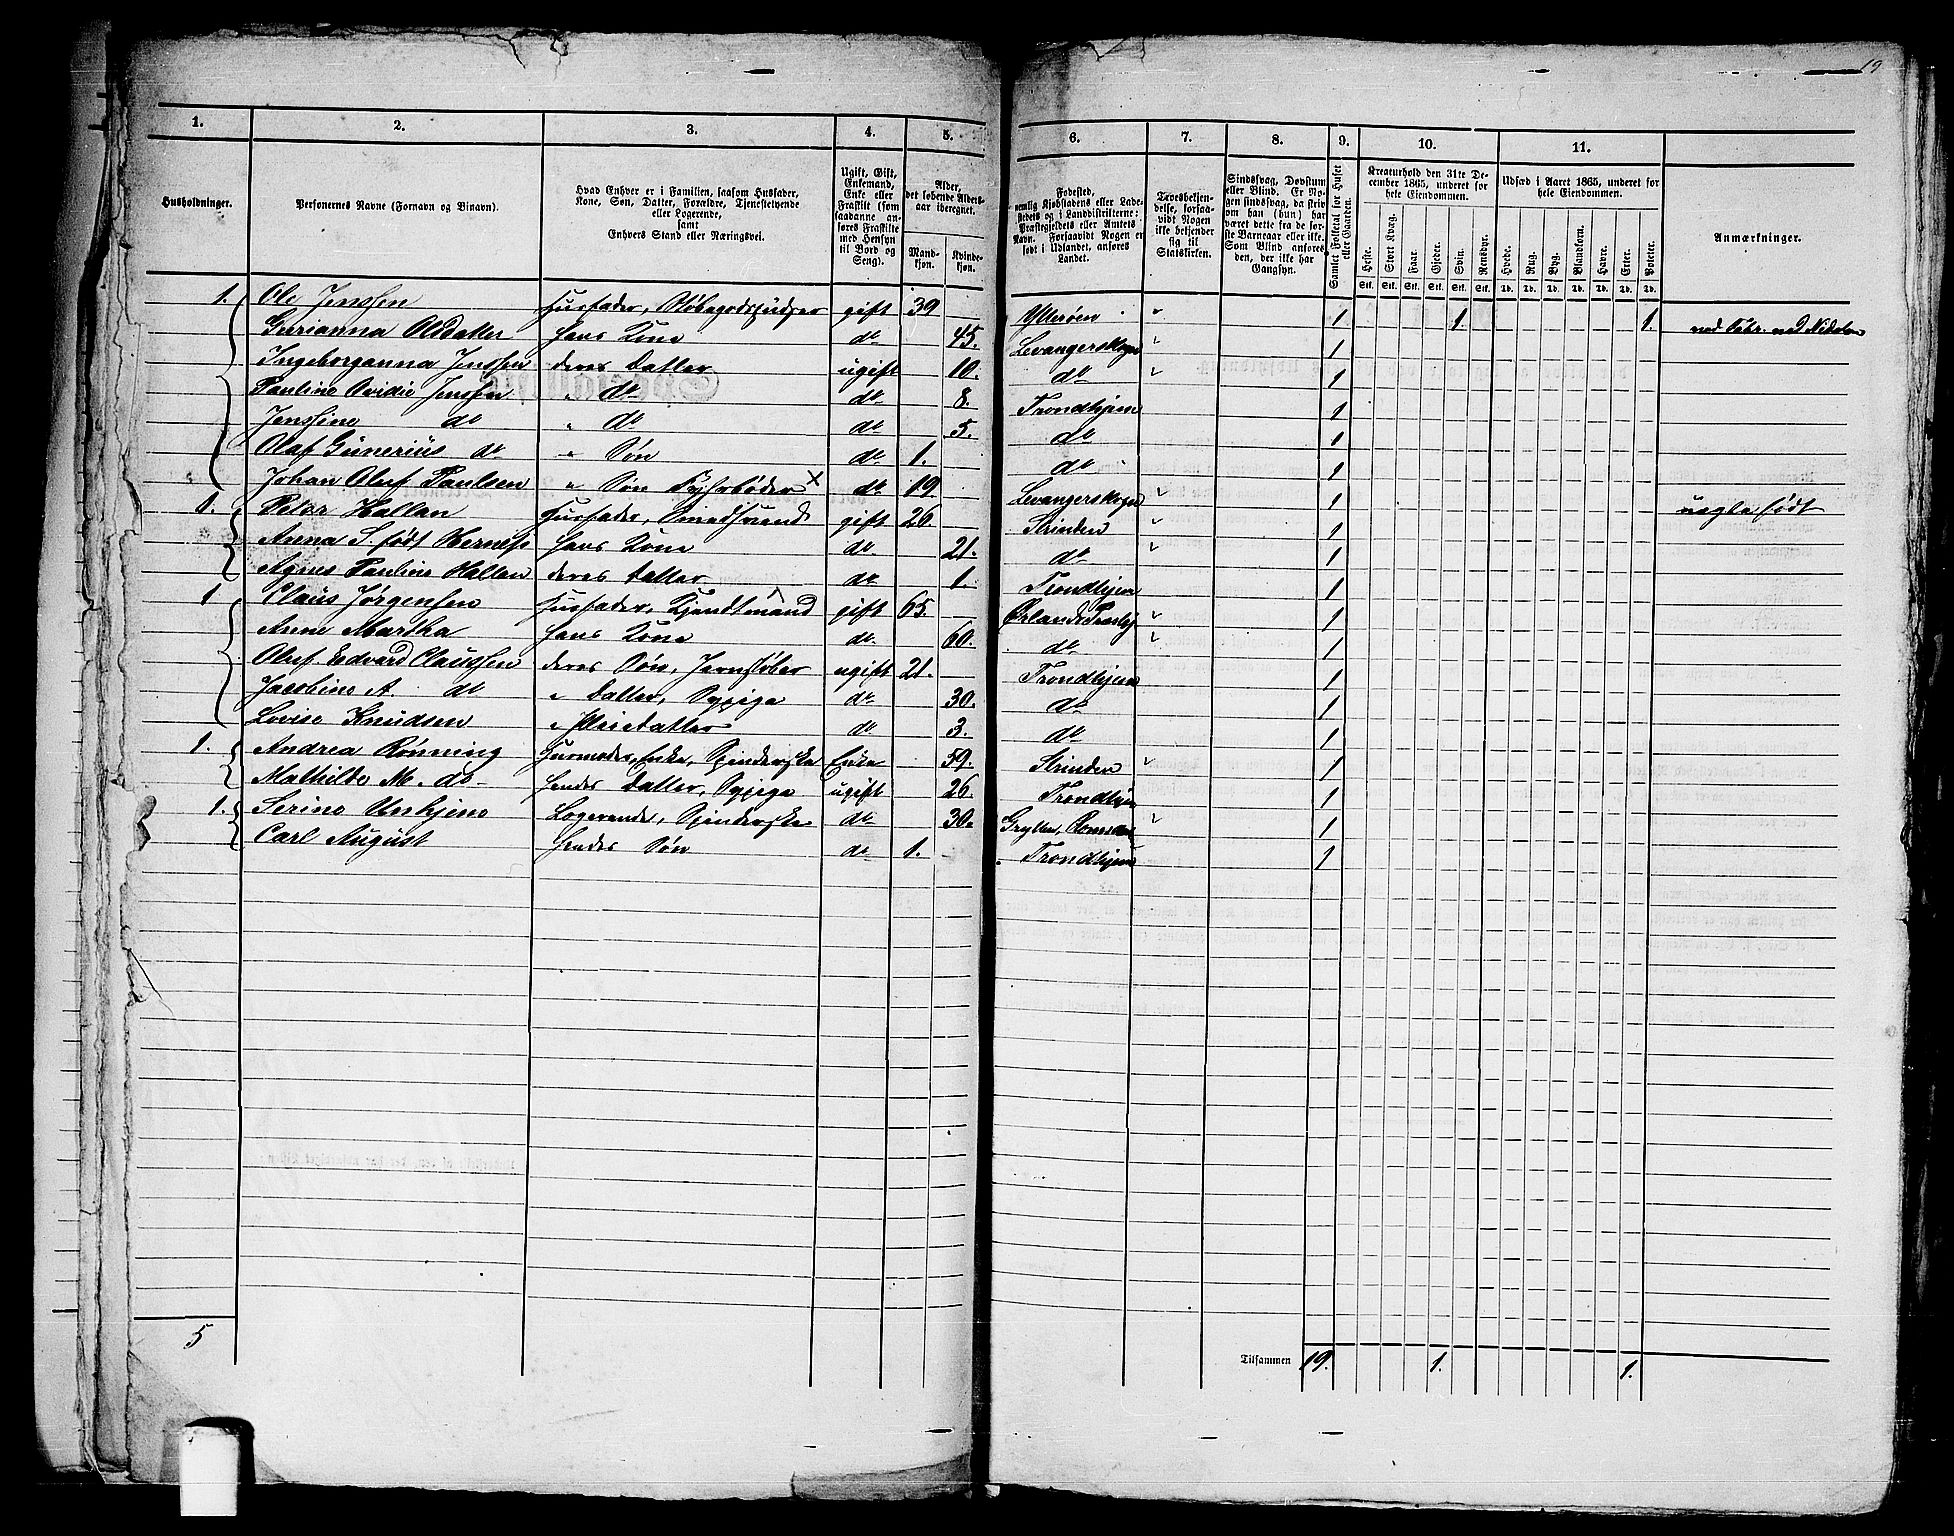 19
1. 2. 3. 4. 5. 6. 7. 8. 9. 10. 11.
Husholdninger.
Personernes Navne (Fornavn og Binavn).
Hvad Enhver er i Familien, saasom Husfader,
Kone, Søn, Datter, Forældre, Tjenestetyende
eller Logerende,
samt
Enhvers Stand eller Næringsvei.
Ugift, Gift,
Enkemand,
Enke eller
Fraskilt (som
saadanne an-
føres Fraskilte
med Hensyn
til Bord og
Seng).
Alder,
det løbende Alders-
aar iberegnet.
Mand-
kjøn.
Kvinde-
kjøn.
Fødested,
nemlig Kjøbstadens eller Lade-
stedets og i Landdistrikterne:
Præstegjeldets eller Amtets
Navn. Forsaavidt Nogen er
født i Udlandet, anføres
Landet.
Troesbekjen-
delse, forsaa-
vidt Nogen
ikke bekjender
sig til
Statskirken.
Sindssvag, Døvstum
eller Blind. Er No-
gen sindssvag, da skriv
om han (hun) har
været dette fra de før-
ste Barneaar eller ikke.
Som Blind anføres
den, der ikke har
Gangsyn.
Samlet Folketal for Huset
eller Gaarden.
Kreaturhold den 31te De-
cember 1865, underet for
hele Eiendommen.
Heste. Stort Kvæg. Faar. Gjeder. Svin. Rensdyr.
Stk. Stk. Stk. Stk. Stk. Stk.
Udsæd i Aaret 1865, underet for
hele Eiendommen.
Hvede. Rug. Byg. Blandkorn. Havre. Erter. Poteter.
Td. Td. Td. Td. Td. Td. Td.
Anmærkninger.
1. Ole Jenssen Husfader, gift 39 Ytterøen 1 1 1.
Gurianna Olsdatter Hans Kone do 45. Levangerskogn 1
Ingeborganna Jenssen deres Datter ugift 10. do 1
Pauline Ovidie Jenssen " do do 8. Trondhjem 1
Jenssine do " do do 5. do 1
Olaf Gunerius do " Søn do 1. do 1
Johan Oluf Paulsen " Søn Fyhrbøder X do 19. Levangerskogn 1 uegte født
1. Peter Hallan Husfader, Smedsvend gift 26 Strinden 1
Anna S. født Hernes Hans Kone do 21. do 1
Agnes Pauline Hallan deres Datter do 1. Trondhjem 1
1 Claus Jørgensen Husfader, gift 65 1
Anne Martha Hans Kone do. 60. do 1
Oluf Edvard Claussen deres Søn, Jernstøber ugift 21. Trondhjem 1
Jacobine A. do " Datter, Sypige do 30. do 1
Lovise Knudsen " Pleiedatter do 3. do 1
1. Andrea Rønning Husmoder, Enke, Spinderske Enke 59. Strinden 1
Mathilde M. do- Hendes Datter, Sypige ugift 26. Trondhjem 1
1. Serine Logerende, Spinderske do 30. Grytten, Romsdal 1
Carl August Hendes Søn do 1. Trondhjem 1
5
Tilsammen 19. 1. 1.